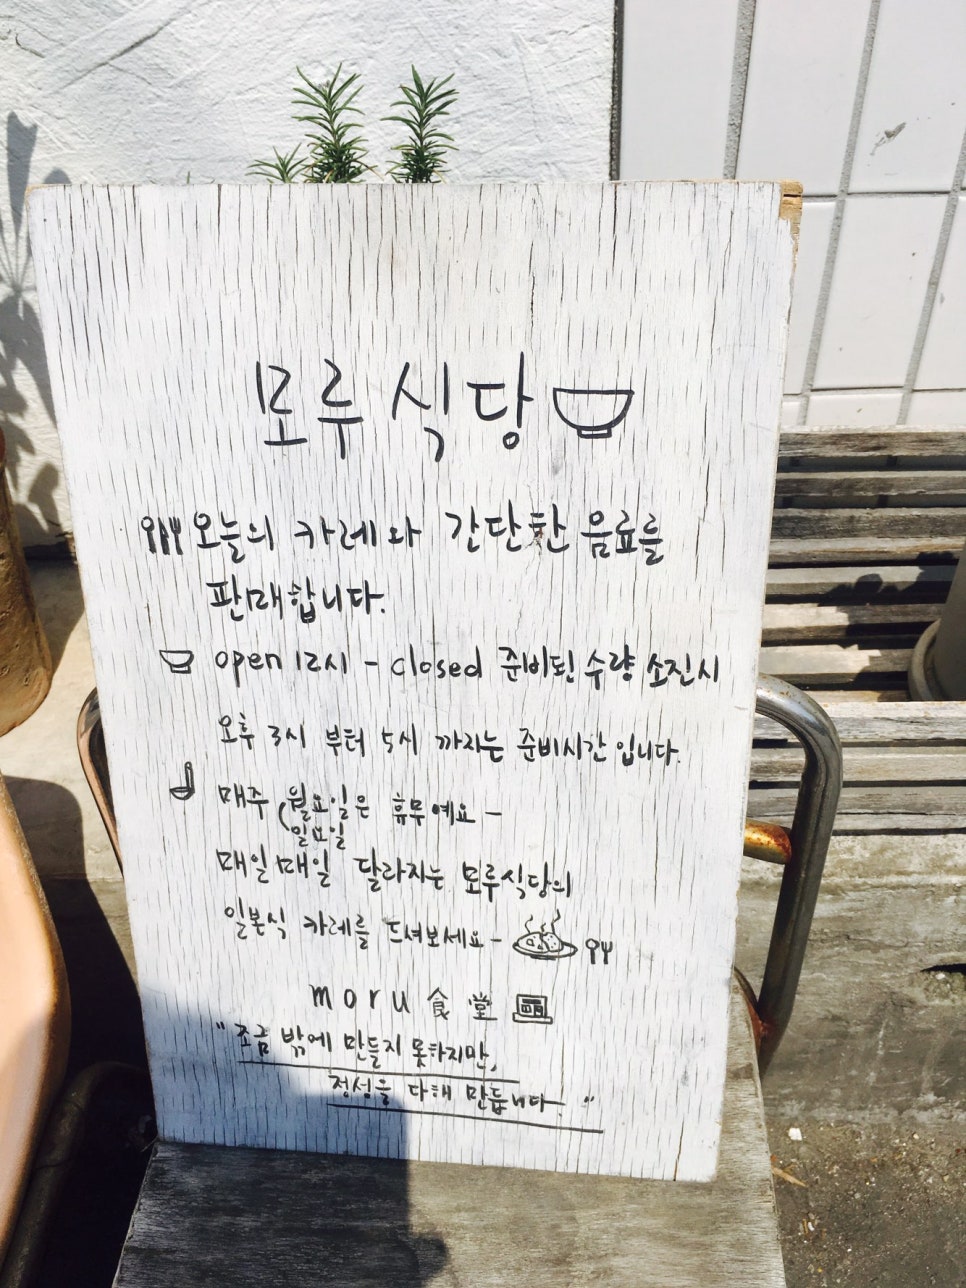 모루식당
오늘의 카레와 간단한 음료를
판매합니다.
open 12시 - closed 준비된 수량 소진시
오후 3시 부터 5시 까지는 준비시간 입니다.
매주 (월요일은 휴무예요 -
일요일
매일매일 달라지는 모루식당의
일본식 카레를 드셔보세요 -
moru 食堂
"조금 밖에 만들지 못하지만,
정성을 다해 만듭니다. "